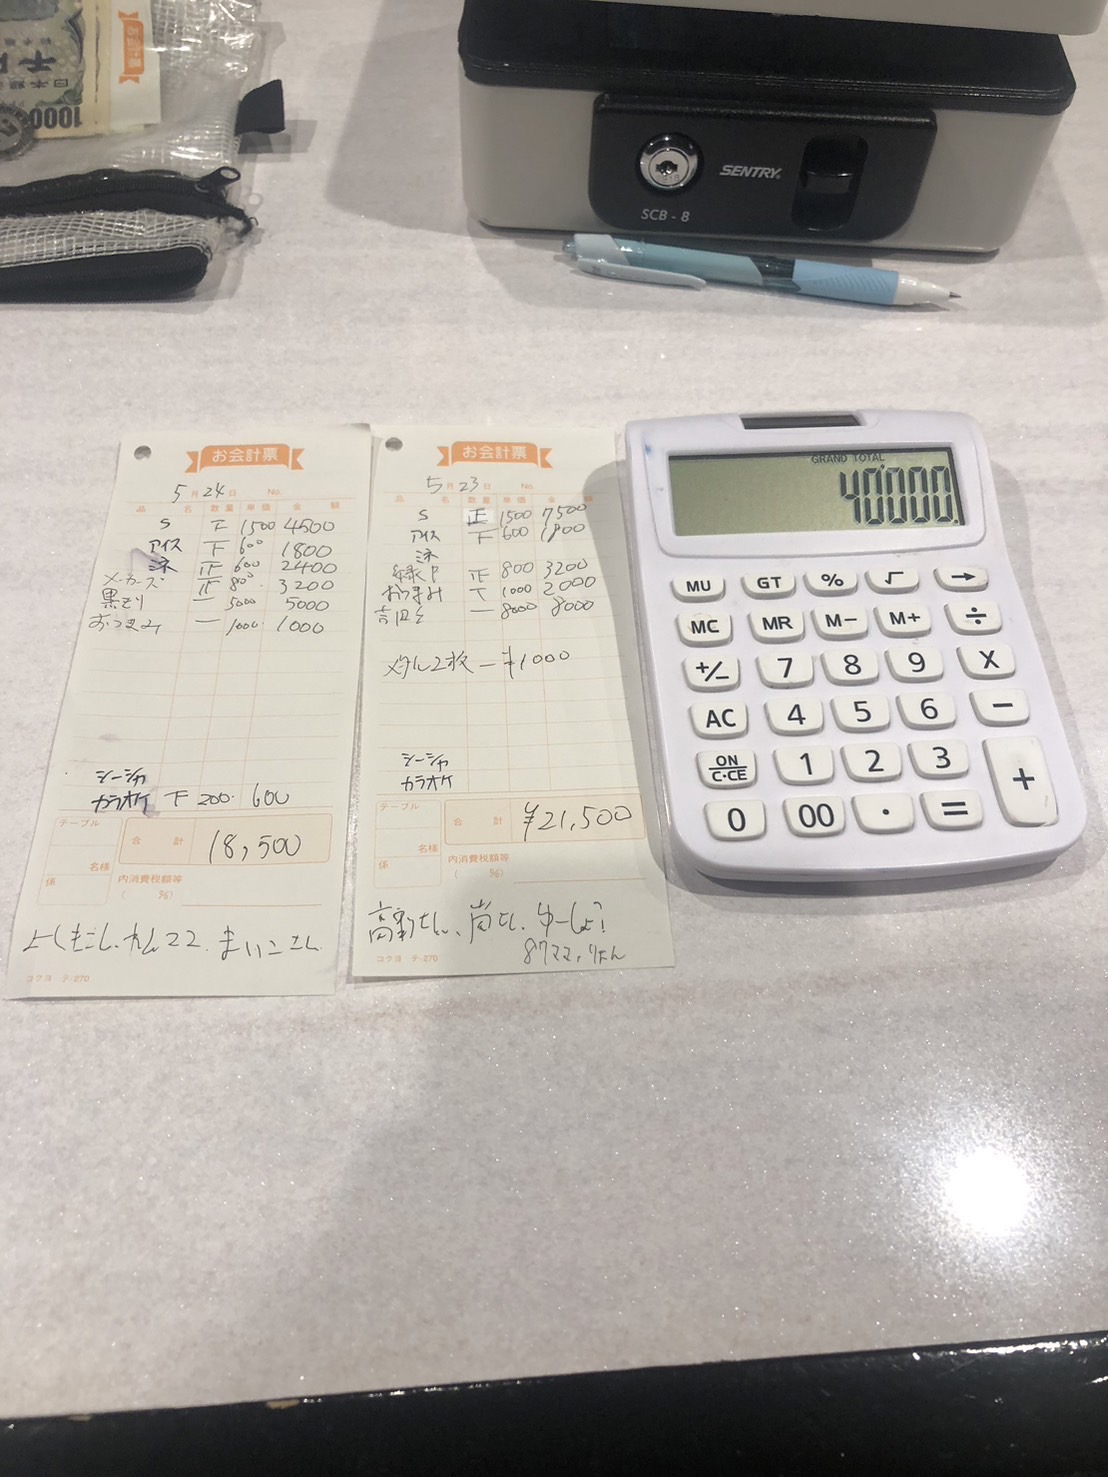 1000
お会計票
SENTRY
SCB - 8
お会計票
5月24日 No.
品 名 数量 単価 金 額
S 下 1500 4500
アイス 下 600 1800
ミネ 正 600 2400
メーカーズ 正 800 3200
黒キリ 一 5000 5000
おつまみ 一 1000 1000
シーシャ
カラオケ 下 200 600
テーブル
名様
係
合 計 18,500
内消費税額等
( %)
まいこさん
コクヨ テ-270
お会計票
5月23日 No.
品 名 数量 単価 金 額
S 正 1500 7500
アイス 下 600 1800
ミネ
緑P 正 800 3200
おつまみ T 1000 2000
吉四六 一 8000 8000
メタル2枚 ー¥1000
シーシャ
カラオケ
テーブル
名様
係
合 計 ¥21,500
内消費税額等
( %)
コクヨ テ-270
GRAND TOTAL
40'000.
MU GT % √ →
MC MR M− M+ ÷
+/− 7 8 9 X
AC 4 5 6 −
ON/C·CE 1 2 3 +
0 00 · =